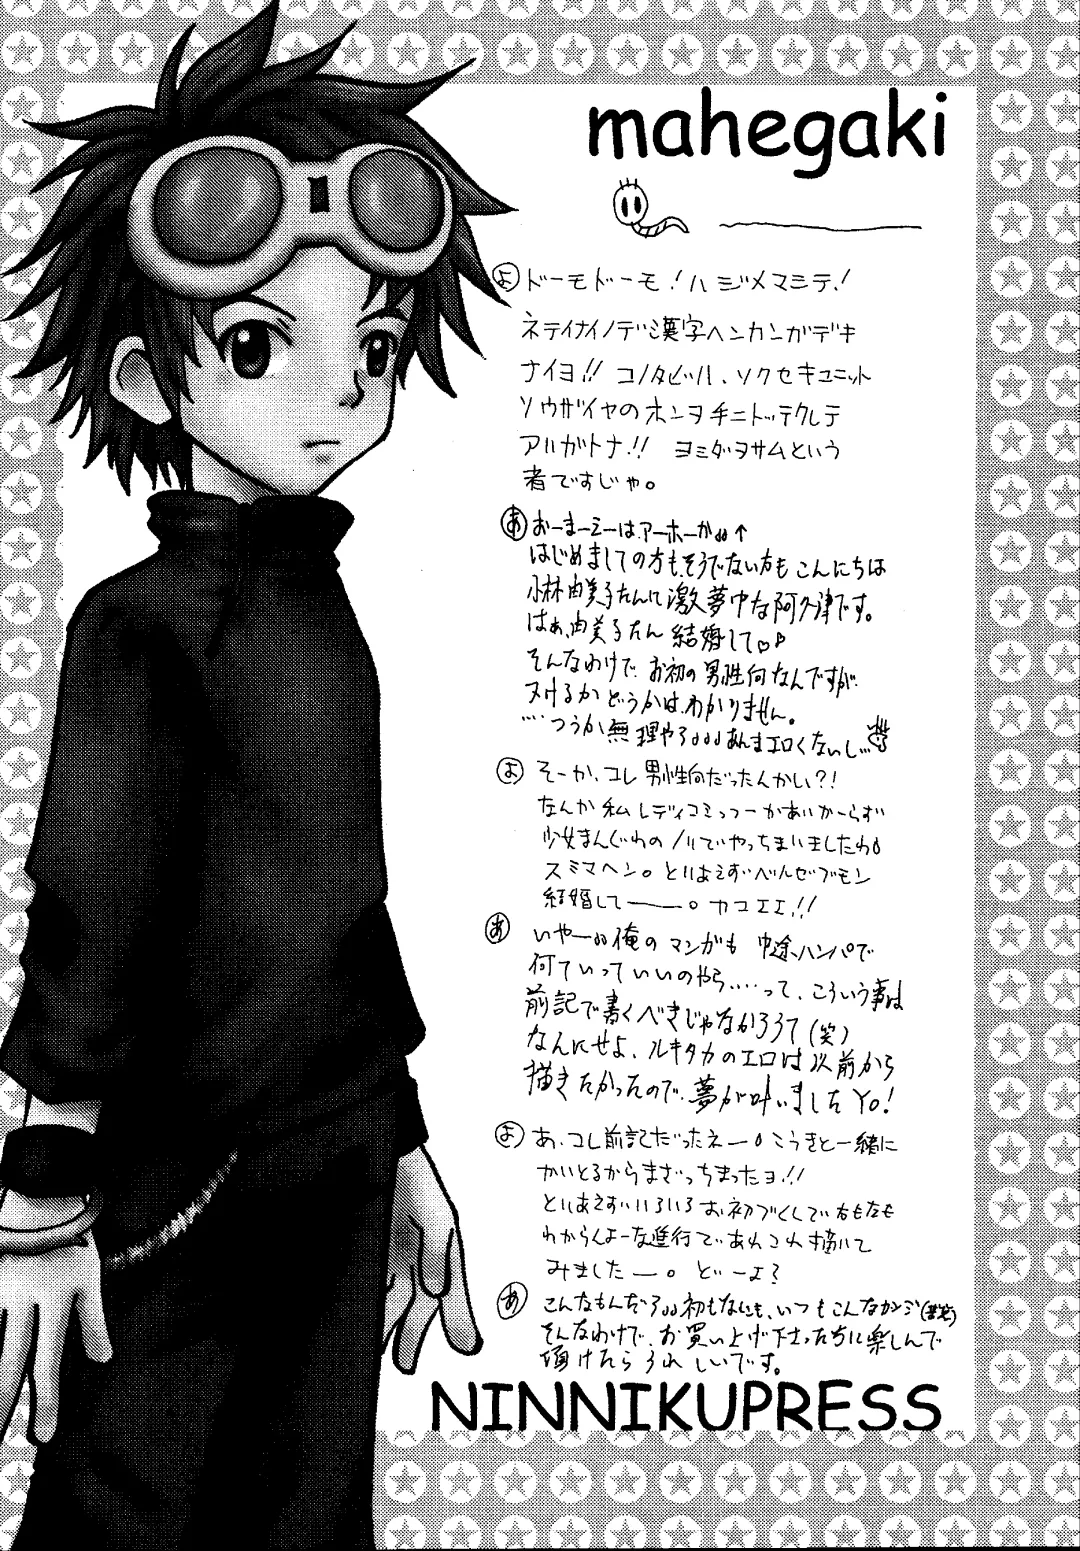 mahegaki
よ ドーモドーモ!ハジメマシテ!
ネテイナイノデ漢字ヘンカンガデキ
ナイヨ!! コノタビハ、ソクセキユニット
ソウザイヤのホンヲ手ニトッテクレテ
アリガトナ!! ヨミダヲサムという
者ですじゃ。
あ おーまーえーは、アーホーか↑
はじめましての方も、そうでない方も こんにちは
小林由美子たんに激夢中な阿久津です。
はぁ、由美子たん 結婚して♡♪
そんなわけで、お初の男性向なんですが、
ヌけるかどうかは、わかりません。
…つうか無理やろ あんまエロくないし…
よ そーか、コレ男性向だったんかい?!
なんか私レディコミっつーかあいかーらず
少女まんがのノリでやっちまいましたわ
スミマヘン。とりあえずベルゼブモン
結婚してーー。カコエエ!!
あ いやー俺のマンガも 中途ハンパで
何ていっていいのやら……って、こういう事は
前記で書くべきじゃなかろうて(笑)
なんにせよ、ルキタカのエロは以前から
描きたかったので、夢が叶いましたYo!
よ あ、コレ前記だったネー。こうきと一緒に
かいとるからまざっちまったヨ!!
とりあえずいろいろお初づくしで右も左も
わからんよーな進行であれこれ描いて
みましたー。どーよ?
あ こんなもんだろ 初もなにも、いつもこんなカンジ(苦笑)
そんなわけで、お買い上げ下さった方に楽しんで
頂けたらうれしいです。
NINNIKUPRESS